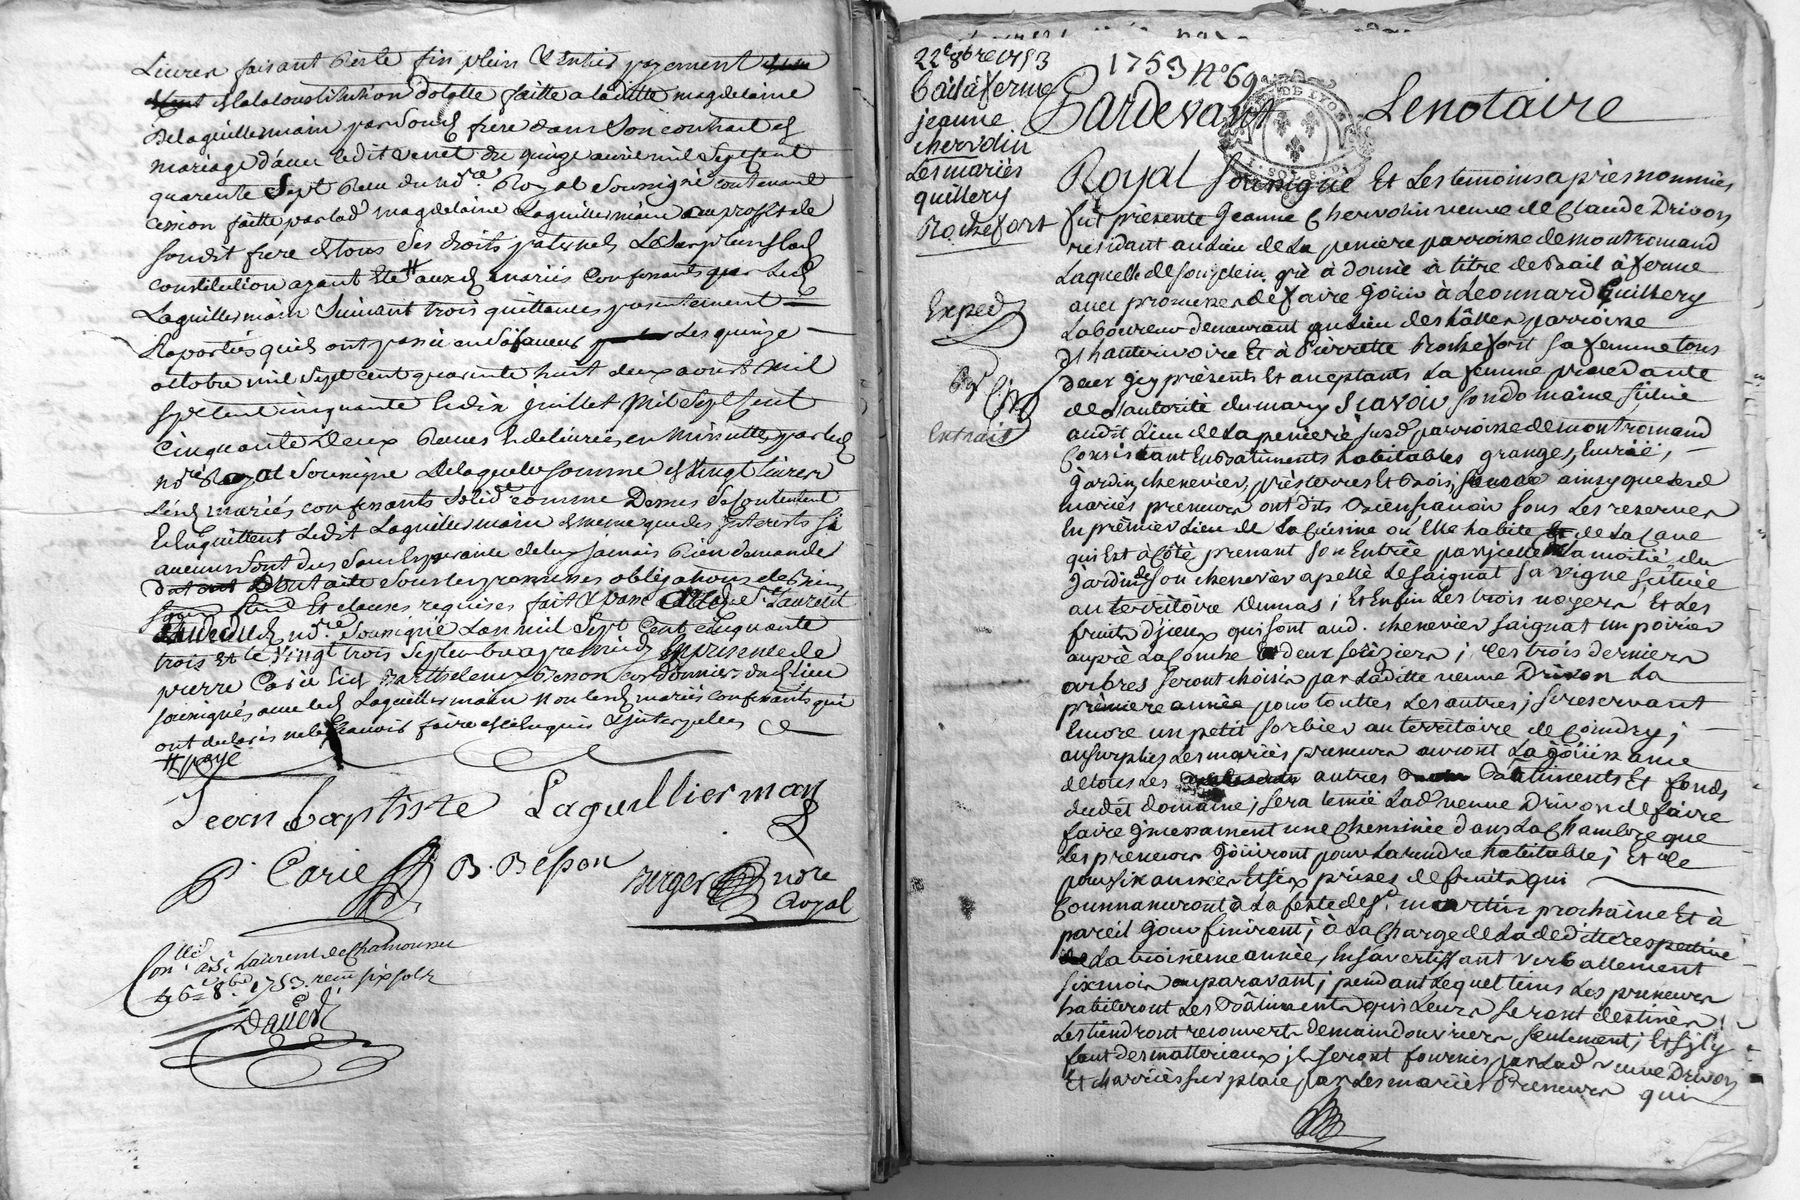 Livres faisant Reste fin plein & Entier payement
de la Constitution dotalle faitte a laditte magdelaine
Delaguillermain par Son frere dans Son contrait de
mariage d'avec ledit venet du quinze avril mil Sept cent
quarente Sept Receu du no.re Royal Soussigné contenant
cession faitte par lad. magdelaine Laguillermain au profit de
Sondit frere de tous Ses droits paternels
constitution ayant Eté # auxd. mariés Confessants par led.
Laguillermain Suivant trois quittances
quils ont passé en Sa faveur les quinze
octobre mil Sept cent quarente huit deux aoust mil
Sept cent cinquante Et dix juillet Mil Sept Cent
Cinquante Deux Receues Et delivrées en Minuttes par led.
no.re Royal Soussigné De laquelle somme de vingt livres
Lesd. mariés confessants Solid.t comme Dessus Se Contentent
Et En quittent Ledit Laguillermain de meme que des Interests Si
aucuns Sont dus Sans Esperance de luy jamais Rien demander
Sous les promesses obligations de Biens
Et clauses requises fait & passé St. Laurent
no.re Soussigné Lan mil Sept Cent Cinquante
trois Et le vingt trois Septembre apres midy En presence de
pierre Carie Et Barthelemy Besson cordonnier dud. lieu
soussignés avec led. Laguillermain Non lesd. mariés confessants qui
ont declarés ne le Scavoir faire de ce Enquis & interpelles
# payé
Jean baptiste Laguilliermain
P. Carie B. Besson
Berger no.re
Royal
Con.llé à St. Laurent de Chamousset
le 6e 8bre 1753 reçu six sols
David
22e 8bre 1753
Bail à ferme
jeanne
chervolin
Les mariés
quillery
Rochefort
Exped.
Extrait
1753 No 69
Pardevant Le notaire
Royal soussigné Et Les temoins après nommés
fut présente Jeanne Chervolin veuve de Claude Drivon
résidant au Lieu de La peniere parroisse de montromand
Laquelle de son plein gré à donné à titre de Bail à ferme
avec promesse de faire Jouir à Leonnard Quillery
Laboureur demeurant au Lieu des hâlles parroisse
d'hauterivoire Et à Pierrette Rochefort sa femme tous
deux Icy présents Et acceptants La femme procedante
de L'autorité du mary Scavoir son domaine situé
audit Lieu de La peniere susd. parroisse de montromand
Consistant En Batiments habitables grange, Ecurie,
Jardin, chenevier, prés terres Et Bois, ainsy que Lesd.
mariés preneurs ont dits Bien scavoir sous Les reserves
En prémier Lieu de La Cuisine ou Elle habite de La Cave
qui Est à Côté prenant son Entrée par jcelle La moitié du
Jardin son chenevier apellé Le Saignat sa vigne Située
au territoire Dumas; Et Enfin Les trois noyers Et Les
fruits d'jceux qui sont aud. chenevier Saignat un poirier
auprè La Combe deux ; Les trois derniers
arbres seront choisis par Laditte veuve Drivon La
prémiere année pour touttes Les autres; se reservant
Encore un petit sorbier au territoire de Coindry;
au surplus Les mariés preneurs auront La Joüissance
de tous Les autres Batiments Et fonds
dudit domaine; sera tenüe Lad. veuve Drivon de faire
faire Incessament une Cheminée dans La Chambre que
Les preneurs Joüiront pour La rendre habitable; Et Ce
pour six années Et six prises de fruits qui
Commanceront à La feste de St. martin prochaine Et à
pareil Jour finiront; à La Charge de La deditte respective
La troisième année, En s'avertissant verballement
six mois auparavant; pendant Lequel tems Les preneurs
habiteront Les Bâtiments qui Leurs seront destinés,
Les tiendront recouverts de main d'ouvriers seulement; Et s'jl y
faut des materiaux jls seront fournis par Lad. veuve Drivon
Et charriés sur place par Les mariés Preneurs qui